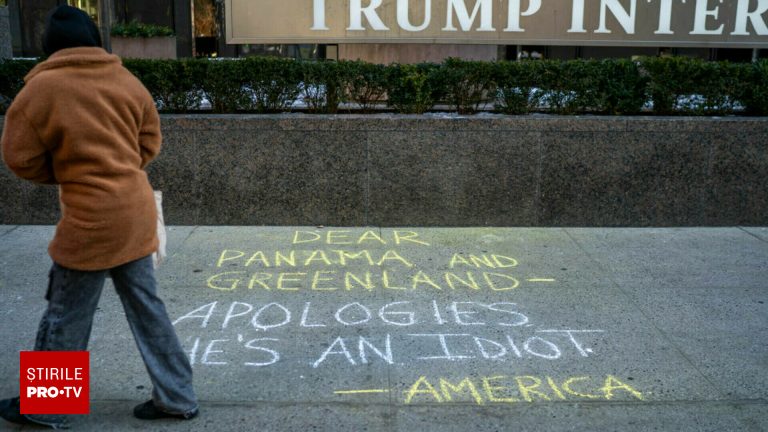 TRUMP INTER
DEAR
PANAMA AND
GREENLAND —
APOLOGIES
HE'S AN IDIOT
— AMERICA
ȘTIRILE
PRO•TV